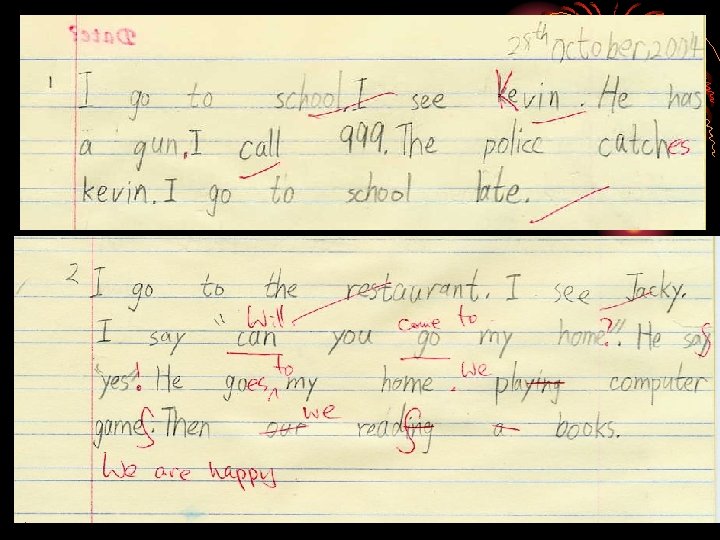 Date?
28th October, 2004
1 I go to school. I see Kevin. He has
a gun. I call 999. The police catches
kevin. I go to school late.
2 I go to the restaurant. I see Jacky.
Will come to
I say "can you go my home?". He says
to we
"yes"! He goes, my home. playing computer
we
games. Then our reading a books.
We are happy.